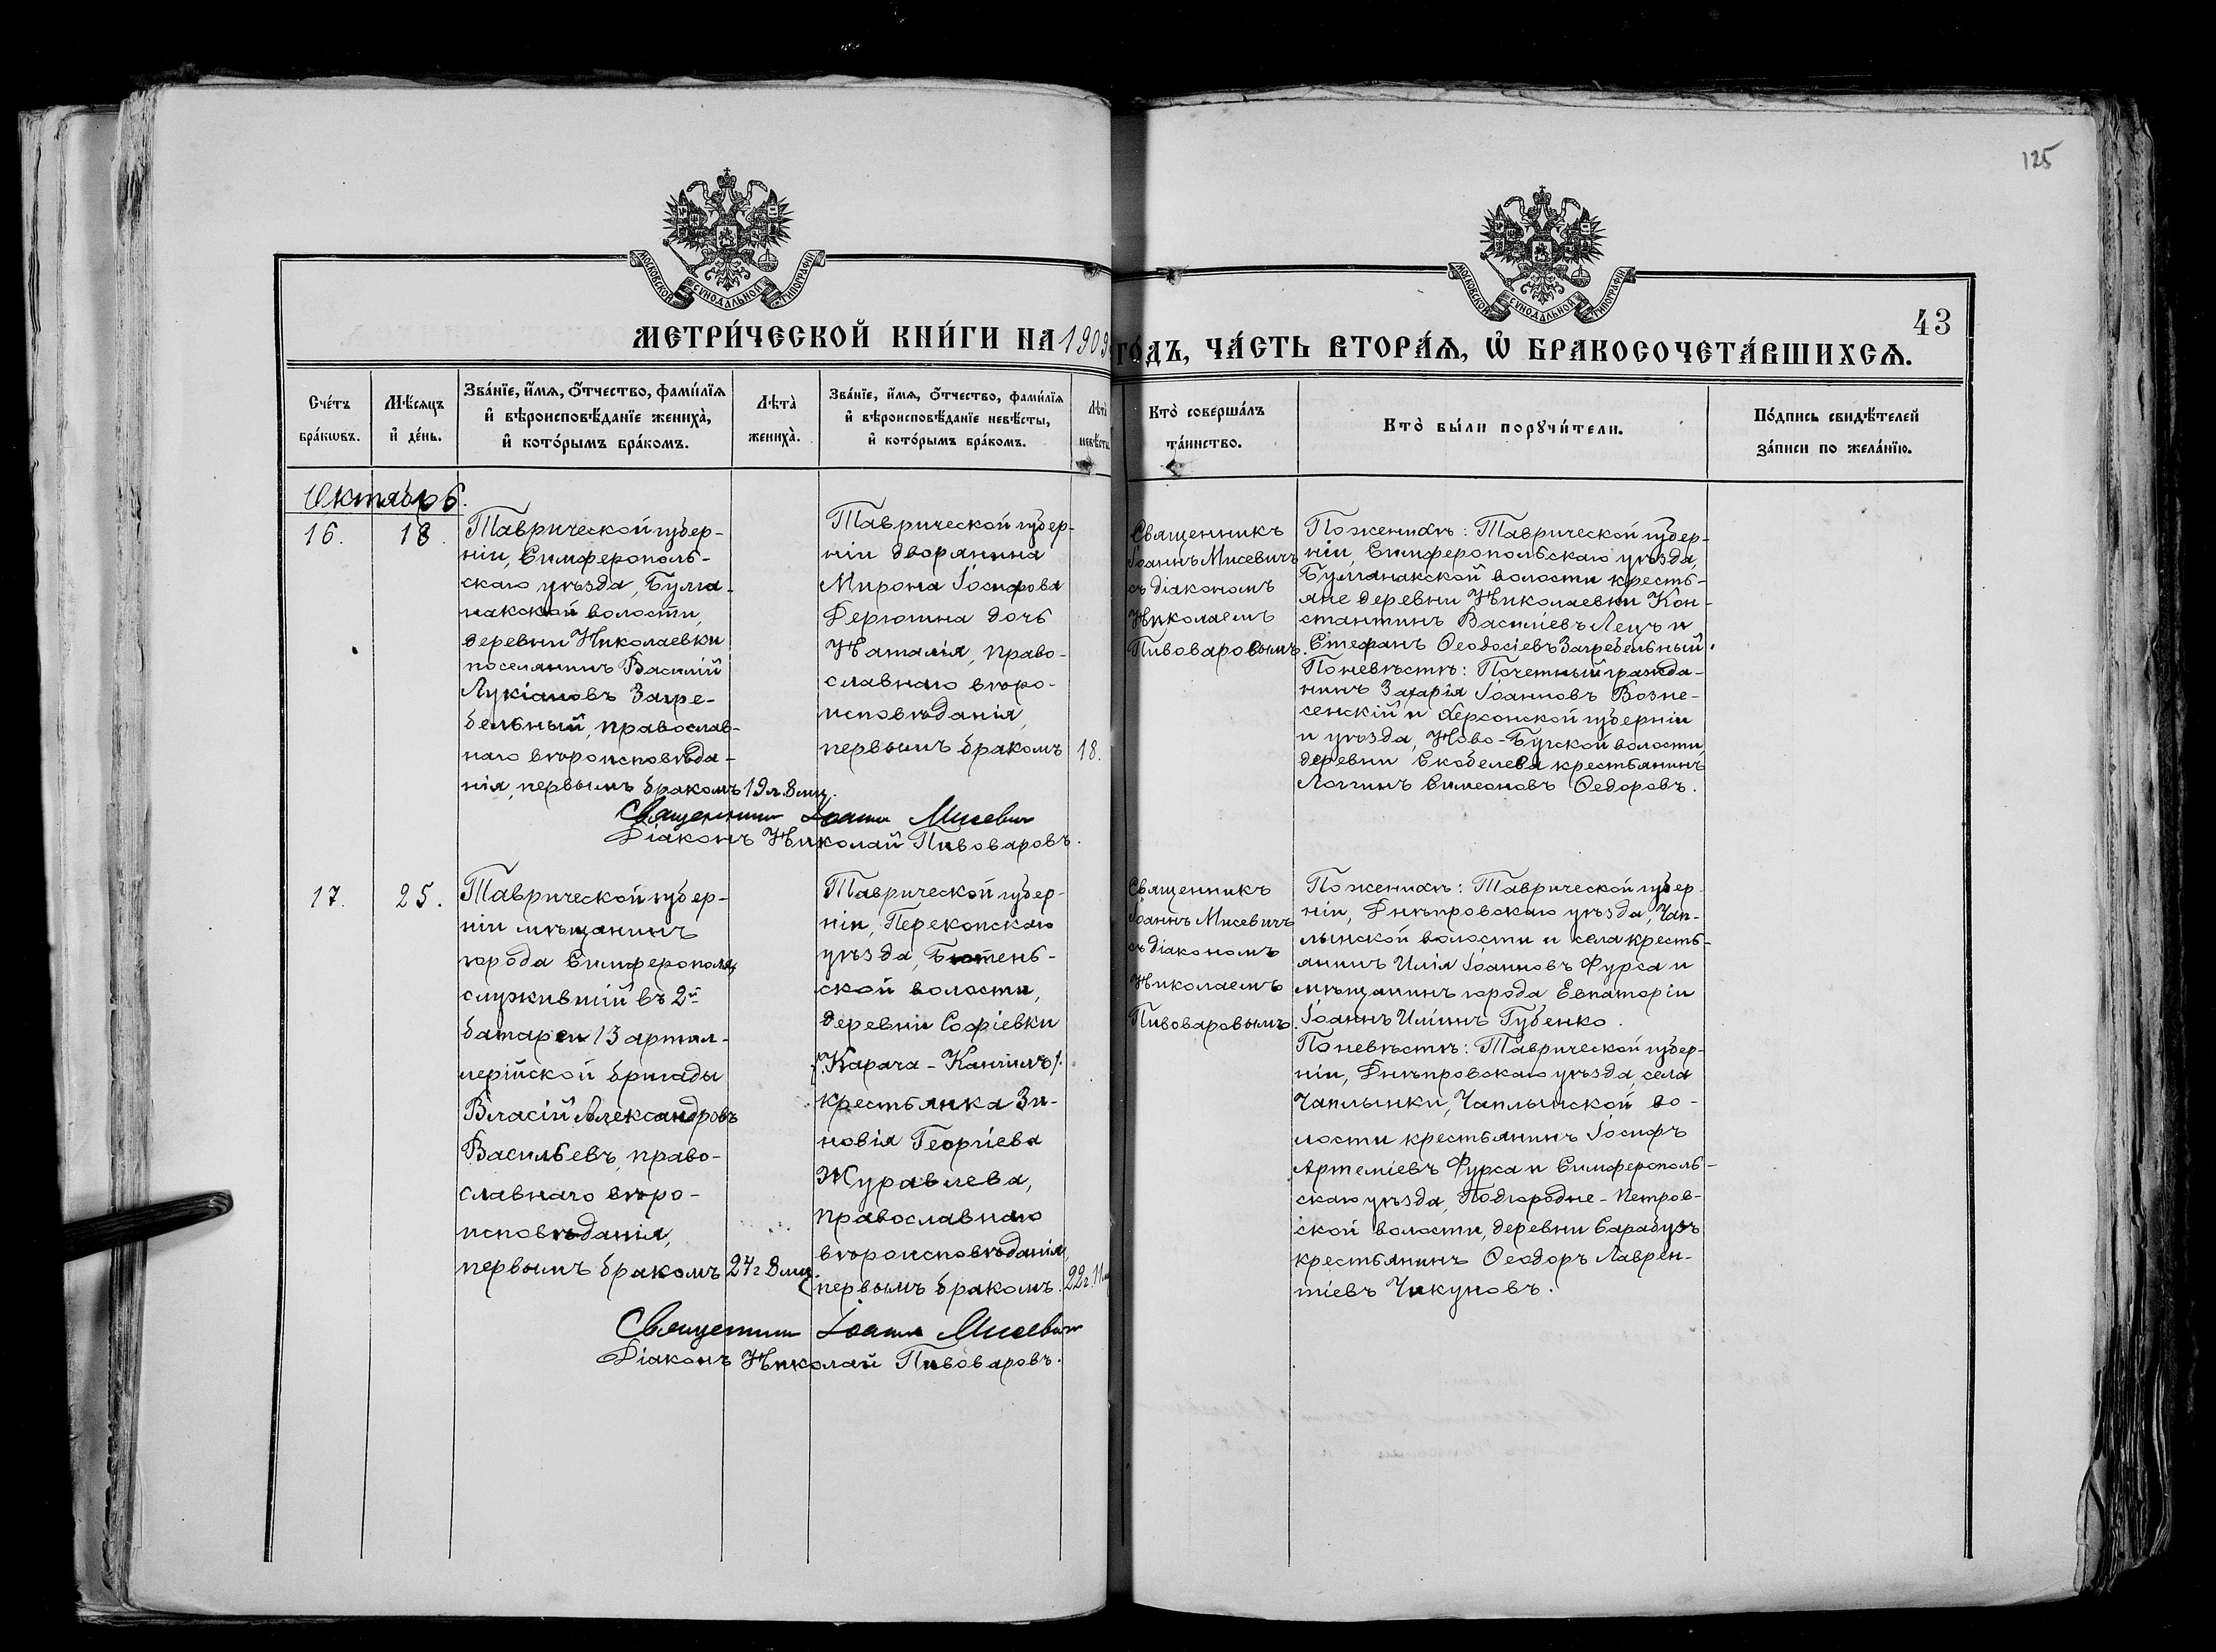 125
МОСКОВСКОЙ СѴНОДАЛЬНОЙ ТИПОГРАФІИ
МОСКОВСКОЙ СѴНОДАЛЬНОЙ ТИПОГРАФІИ
43
МЕТРИ́ЧЕСКОЙ КНИ́ГИ НА 1909
ГО́ДЪ, ЧА́СТЬ ВТОРА́Ѧ, Ѽ БРАКОСОЧЕТА́ВШИХСѦ.
Сче́тъ
бра́кωвъ.
Мѣ́сяцъ
и҆ де́нь.
Зва́нїе, и҆́мѧ, ѻ҆́тчество, фами́лїѧ
и҆ вѣроисповѣ́данїе жениха̀,
и҆ кото́рымъ бра́комъ.
Лѣта̀
жениха̀.
Зва́нїе, и҆́мѧ, ѻ҆́тчество, фами́лїѧ
и҆ вѣроисповѣ́данїе невѣ́сты,
и҆ кото́рымъ бра́комъ.
Лѣта̀
невѣ́сты
Кто̀ соверша́лъ
та́инство.
Кто̀ бы́ли порꙋчи́тели.
По́дпись свидѣ́телей
за́писи по жела́нїю.
Октябрь.
16.
18.
Таврической губер-
ніи, Симферополь-
скаго уѣзда, Булга-
накской волости,
деревни Николаевки
поселянинъ Василій
Лукіановъ Загре-
бельный, православ-
наго вѣроисповѣда-
нія, первымъ бракомъ
19 л. 8 мц.
Таврической губер-
ніи дворянина
Мирона Іосифова
Дерюгина дочь
Наталія, право-
славнаго вѣро-
исповѣданія,
первымъ бракомъ
18.
Священникъ
Іоаннъ Мисевичъ
съ діакономъ
Николаемъ
Пивоваровымъ.
По женихѣ: Таврической губер-
ніи, Симферопольскаго уѣзда,
Булганакской волости кресть-
яне деревни Николаевки Кон-
стантинъ Василіевъ Лецъ и
Стефанъ Ѳеодосіевъ Загребельный.
По невѣстѣ: Почетный гражда-
нинъ Захарія Іоанновъ Возне-
сенскій и Херсонской губерніи
и уѣзда, Ново-Бугской волости,
деревни Скобелева крестьянинъ
Логгинъ Симеоновъ Ѳедоровъ.
Священникъ Іоаннъ Мисевичъ
Діаконъ Николай Пивоваровъ.
17.
25.
Таврической губер-
ніи мѣщанинъ
города Симферополя,
служившій въ 2й
батареи 13 артил-
лерійской бригады
Власій Александровъ
Васильевъ, право-
славнаго вѣро-
исповѣданія,
первымъ бракомъ
24 г. 8 мц.
Таврической губер-
ніи, Перекопскаго
уѣзда, Бютень-
ской волости,
деревни Софіевки
/:Карача-Кангилъ:/
крестьянка Зи-
новія Георгіева
Журавлева,
православнаго
вѣроисповѣданія,
первымъ бракомъ.
22 г. 11 мц
Священникъ
Іоаннъ Мисевичъ
съ діакономъ
Николаемъ
Пивоваровымъ.
По женихѣ: Таврической губер-
ніи, Днѣпровскаго уѣзда, Чап-
лынской волости и села кресть-
янинъ Илія Іоанновъ Фурса и
мѣщанинъ города Евпаторіи
Іоаннъ Иліинъ Губенко.
По невѣстѣ: Таврической губер-
ніи, Днѣпровскаго уѣзда, села
Чаплынки, Чаплынской во-
лости крестьянинъ Іосифъ
Артеміевъ Фурса и Симферополь-
скаго уѣзда, Подгородне-Петров-
ской волости, деревни Сарабузъ
крестьянинъ Ѳеодоръ Лаврен-
тіевъ Чикуновъ.
Священникъ Іоаннъ Мисевичъ
Діаконъ Николай Пивоваровъ.